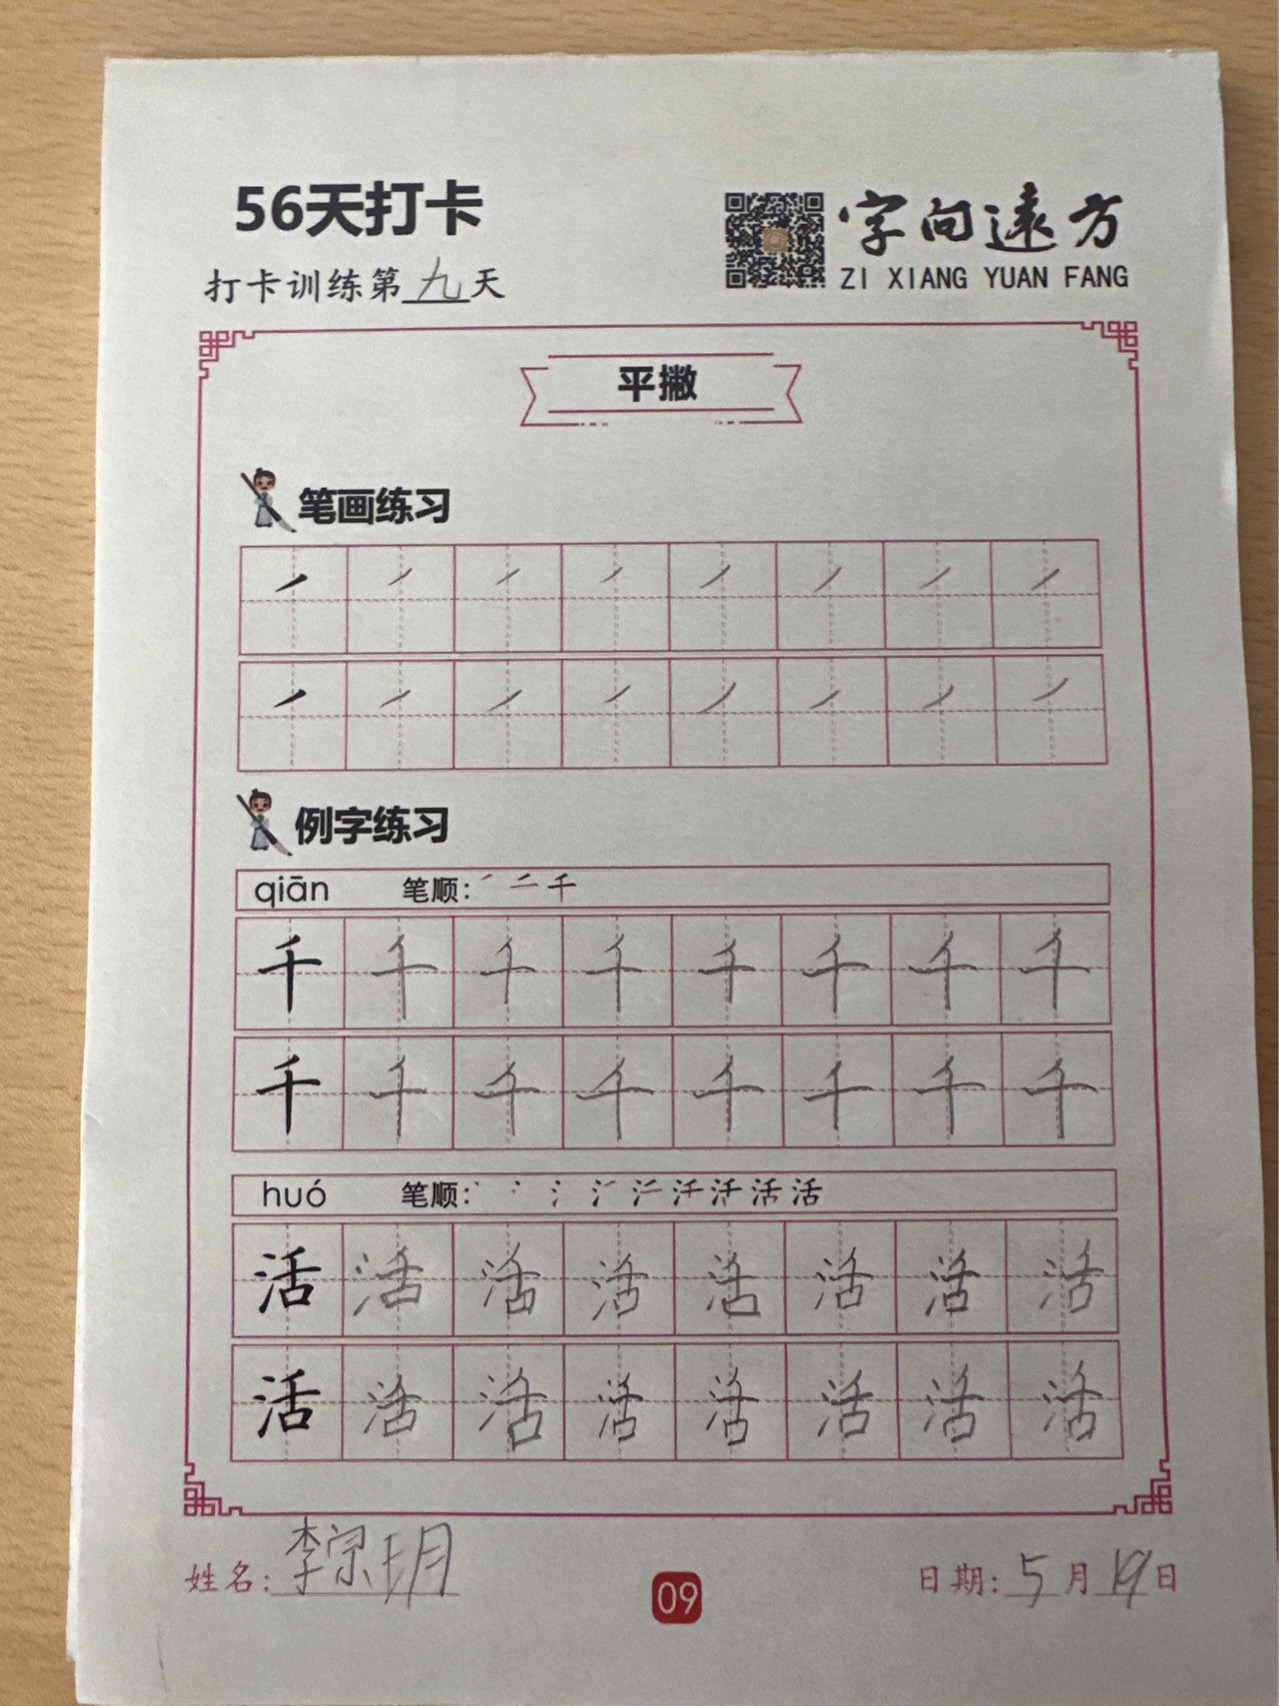 56天打卡
字向远方
ZI XIANG YUAN FANG
打卡训练第九天
平撇
笔画练习
例字练习
qiān 笔顺：
千 千 千 千 千 千 千 千
千 千 千 千 千 千 千 千
huó 笔顺：
活 活 活 活 活 活 活 活
活 活 活 活 活 活 活 活
姓名：李宗玥
09
日期：5月19日